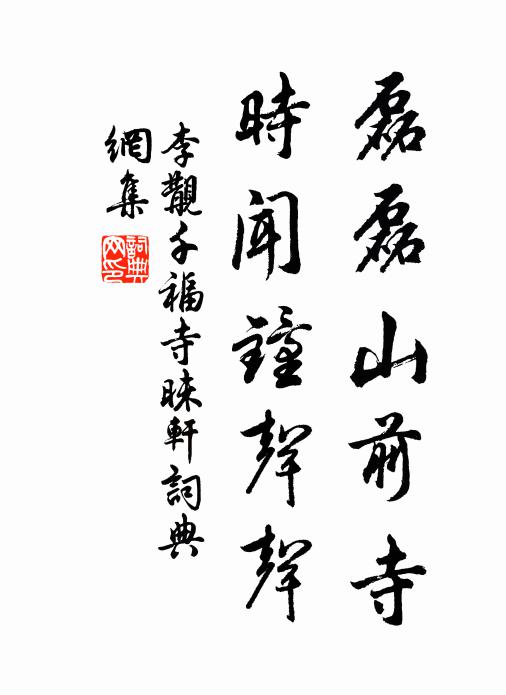 磊磊山前寺
時聞鐘聲聲
李觀千福寺昧軒詞典
網集
詞典網印